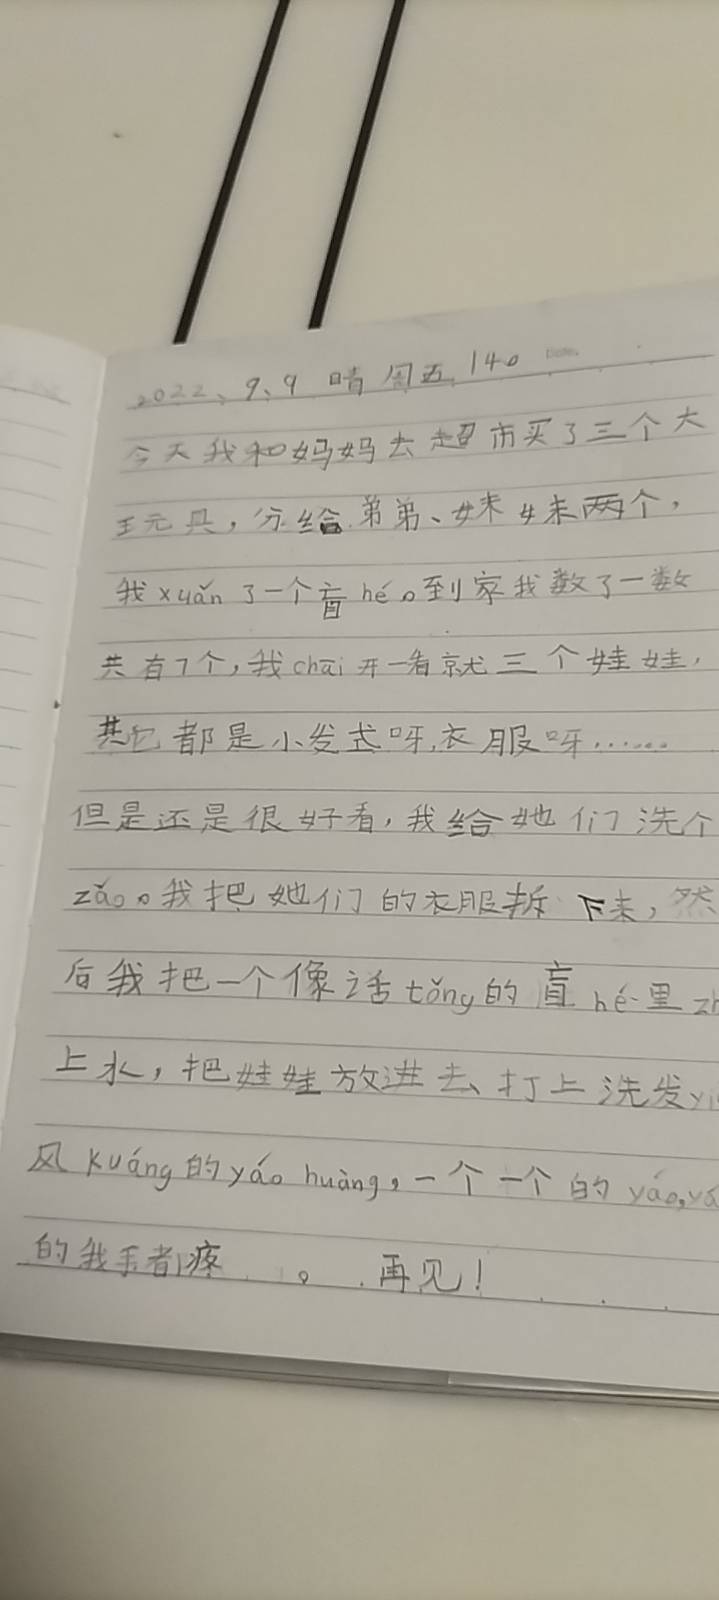 2022、9、9 晴 周五 140
今天我和妈妈去超市买了三个大
玩具，分给弟弟、妹妹两个，
我xuǎn了一个盲hé。到家我数了一数
共有7个，我chāi开一看就三个娃娃，
其它都是小发式呀，衣服呀……
但是还是很好看，我给她们洗个
zǎo。我把她们的衣服拆下来，然
后我把一个像话tǒng的盲hé里
上水，把娃娃放进去、打上洗发
风kuáng的yáo huàng，一个一个的yáo,
的我手都疼。再见！